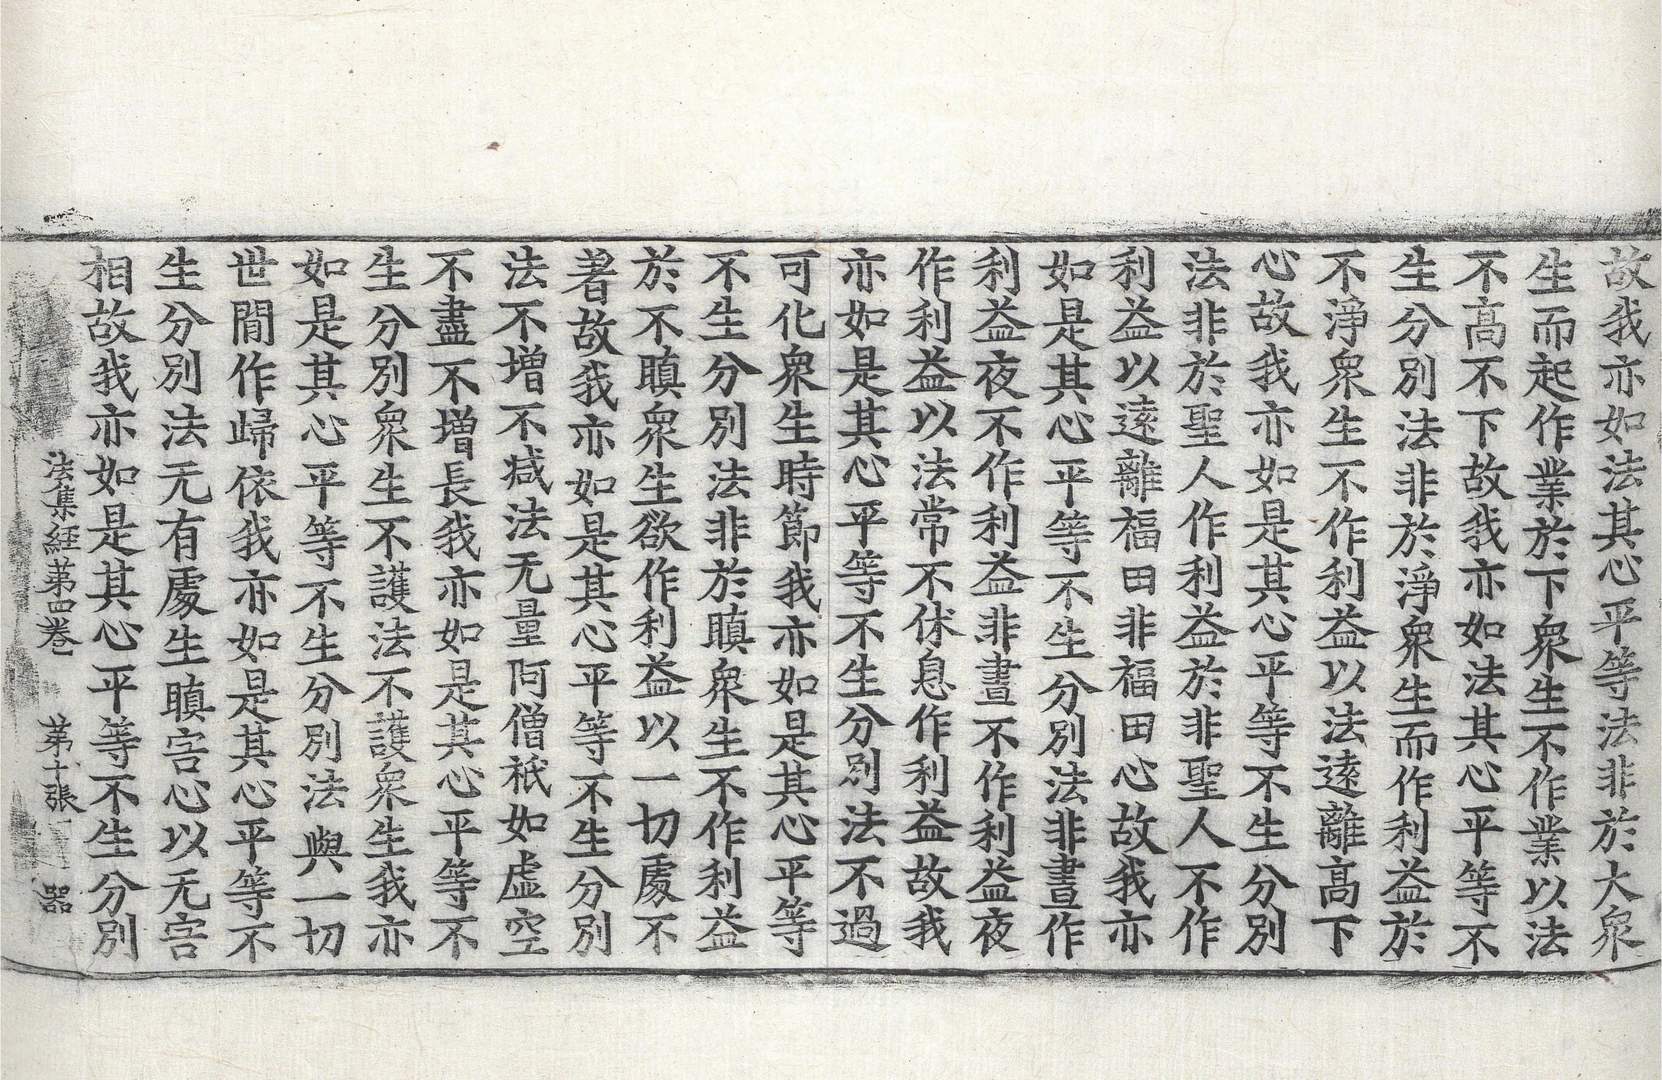 故我亦如法其心平等法非於大衆
生而起作業於下衆生不作業以法
不高不下故我亦如法其心平等不
生分別法非於淨衆生而作利益於
不淨衆生不作利益以法遠離高下
心故我亦如是其心平等不生分別
法非於聖人作利益於非聖人不作
利益以遠離福田非福田心故我亦
如是其心平等不生分別法非晝作
利益夜不作利益非晝不作利益夜
作利益以法常不休息作利益故我
亦如是其心平等不生分別法不過
可化衆生時節我亦如是其心平等
不生分別法非於瞋衆生不作利益
於不瞋衆生欲作利益以一切處不
著故我亦如是其心平等不生分別
法不增不減法无量阿僧祇如虛空
不盡不增長我亦如是其心平等不
生分別衆生不護法不護衆生我亦
如是其心平等不生分別法與一切
世閒作歸依我亦如是其心平等不
生分別法无有處生瞋害心以无害
相故我亦如是其心平等不生分別
法集經第四卷　第十張　器